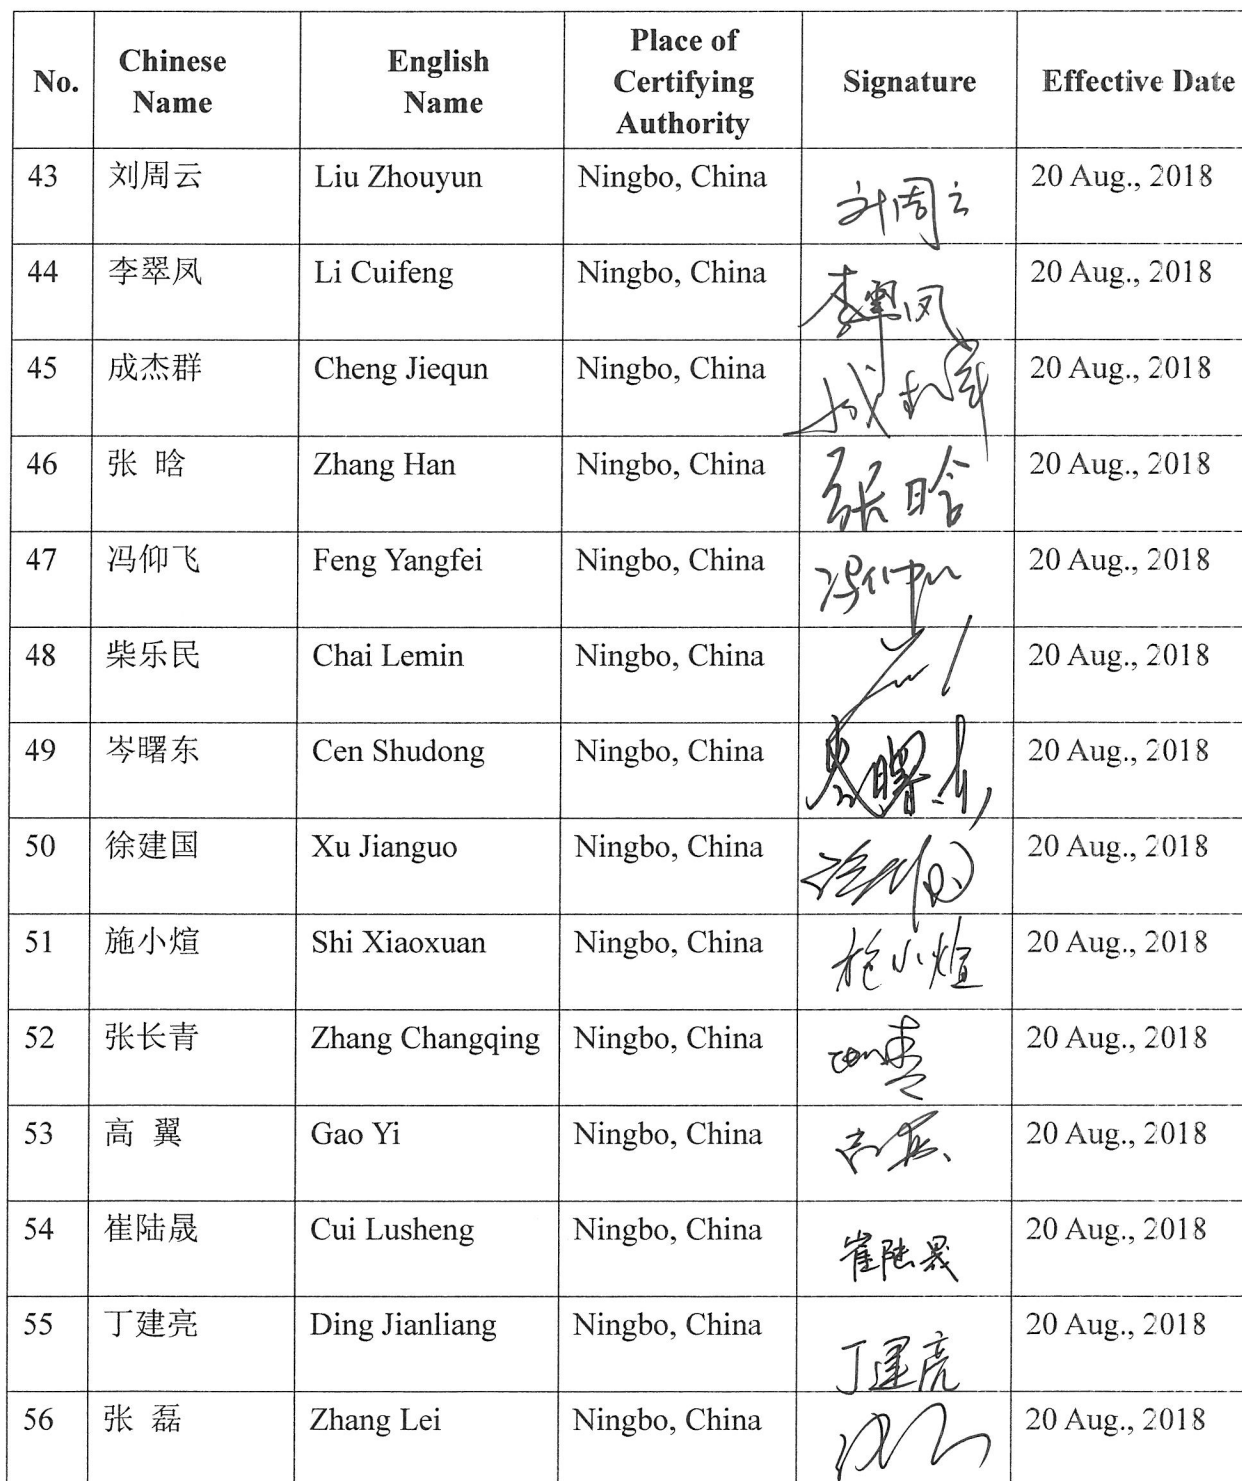 No. Chinese Name English Name Place of Certifying Authority Signature Effective Date
43 刘周云 Liu Zhouyun Ningbo, China 刘周云 20 Aug., 2018
44 李翠凤 Li Cuifeng Ningbo, China 李翠凤 20 Aug., 2018
45 成杰群 Cheng Jiequn Ningbo, China 20 Aug., 2018
46 张 晗 Zhang Han Ningbo, China 张晗 20 Aug., 2018
47 冯仰飞 Feng Yangfei Ningbo, China 20 Aug., 2018
48 柴乐民 Chai Lemin Ningbo, China 20 Aug., 2018
49 岑曙东 Cen Shudong Ningbo, China 20 Aug., 2018
50 徐建国 Xu Jianguo Ningbo, China 20 Aug., 2018
51 施小煊 Shi Xiaoxuan Ningbo, China 施小煊 20 Aug., 2018
52 张长青 Zhang Changqing Ningbo, China 20 Aug., 2018
53 高 翼 Gao Yi Ningbo, China 20 Aug., 2018
54 崔陆晟 Cui Lusheng Ningbo, China 崔陆晟 20 Aug., 2018
55 丁建亮 Ding Jianliang Ningbo, China 丁建亮 20 Aug., 2018
56 张 磊 Zhang Lei Ningbo, China 20 Aug., 2018